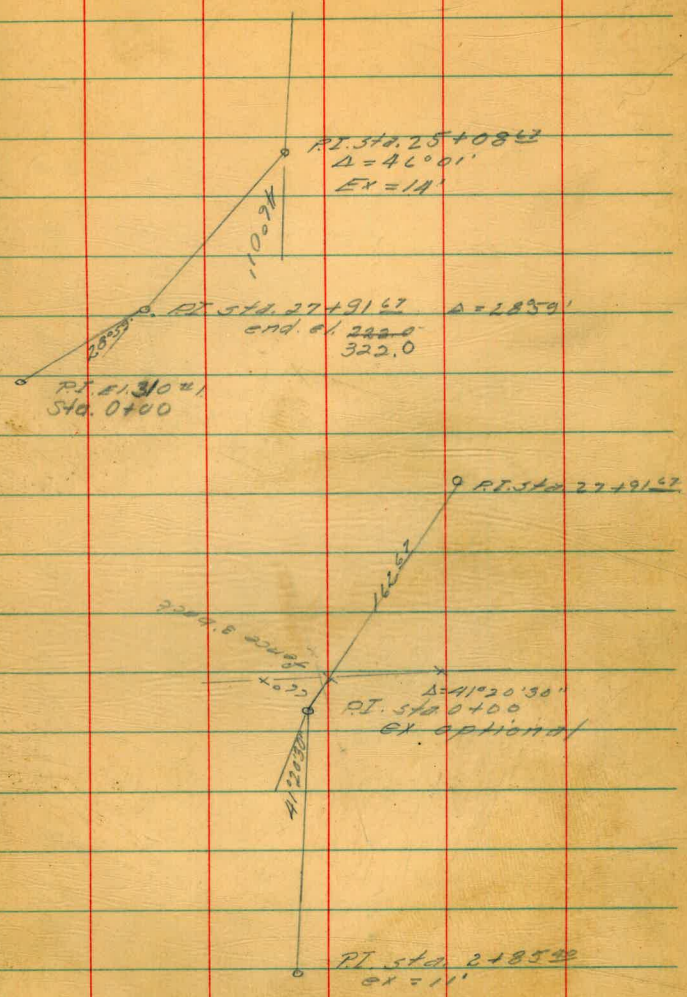 P.I. sta. 25+08 67
Δ = 46°01'
Ex = 14'
46°01'
P.I. sta. 27+91 67 Δ = 28°59'
end. el. 222.0
322.0
28°59'
P.I. El. 310
Sta. 0+00
P.I. sta. 27+91 67
162 67
fence
Δ=41°20'30"
P.I. sta. 0+00
ex optional
41°20'30"
P.I. sta. 2+85
ex = 11'